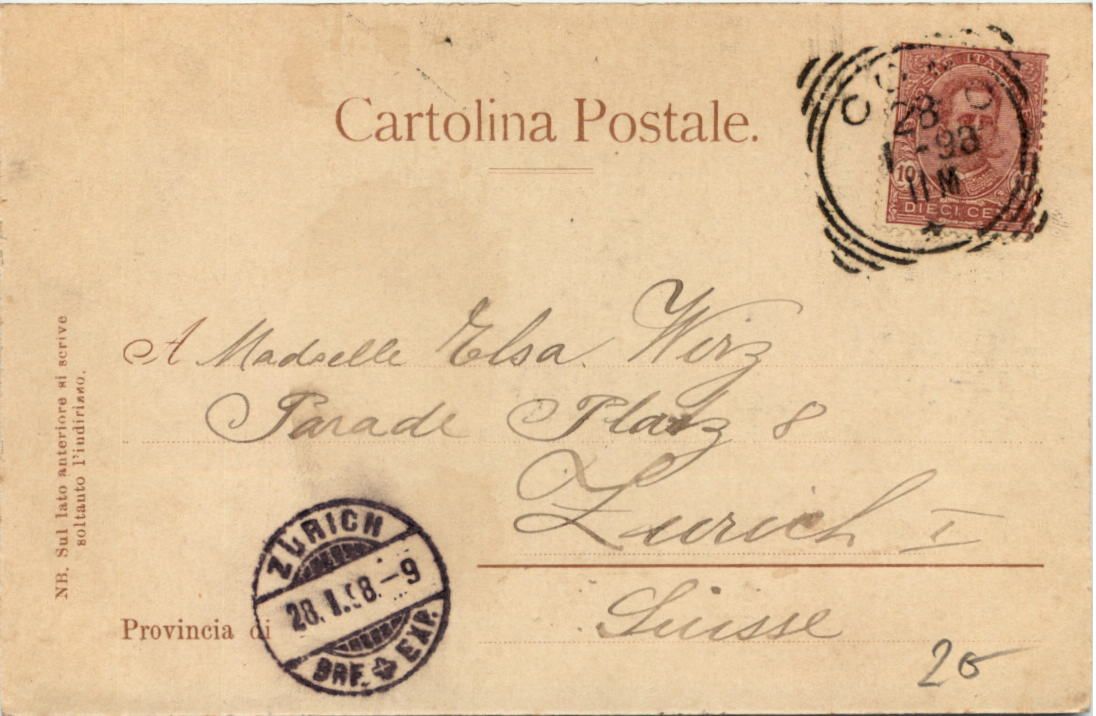 Cartolina Postale.
POSTE ITAL
10
DIECI CE
28
1-98
11 M
A Madselle Elsa Wirz
Parade Platz 8
Zurich I
Suisse
NB. Sul lato anteriore si scrive
soltanto l'indirizzo.
Provincia di
ZÜRICH
28.I.98.-9
BRF. EXP.
26